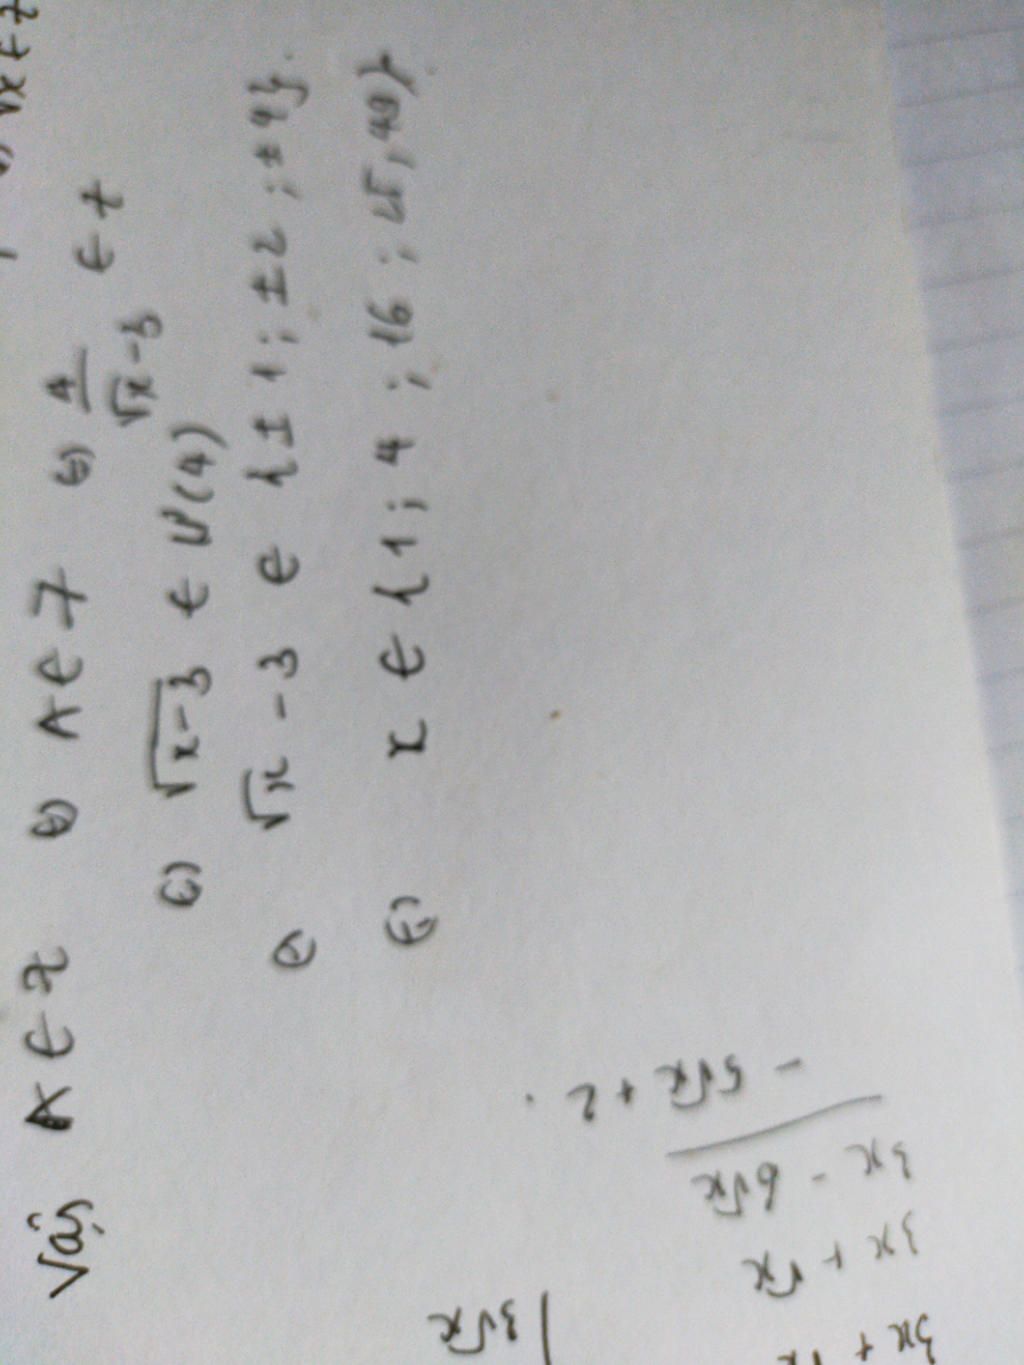 √x ∈ Z
Vậy A ∈ Z ⇔ A ∈ Z ⇔ 4/(√x-3) ∈ Z
⇔ √x-3 ∈ Ư(4)
⇔ √x - 3 ∈ {±1; ±2; ±4}.
⇔ x ∈ {1; 4; 16; 25, 49}.
3x + √x
3x - 6√x
- 5√x + 2.
3√x